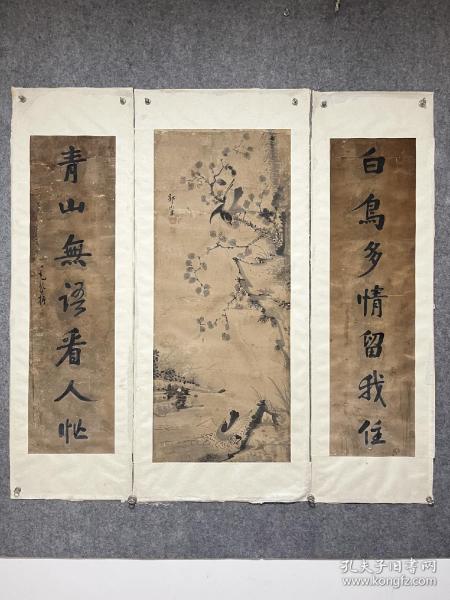 白鳥多情留我住
青山無語看人忙
孔夫子旧书网
www.kongfz.com